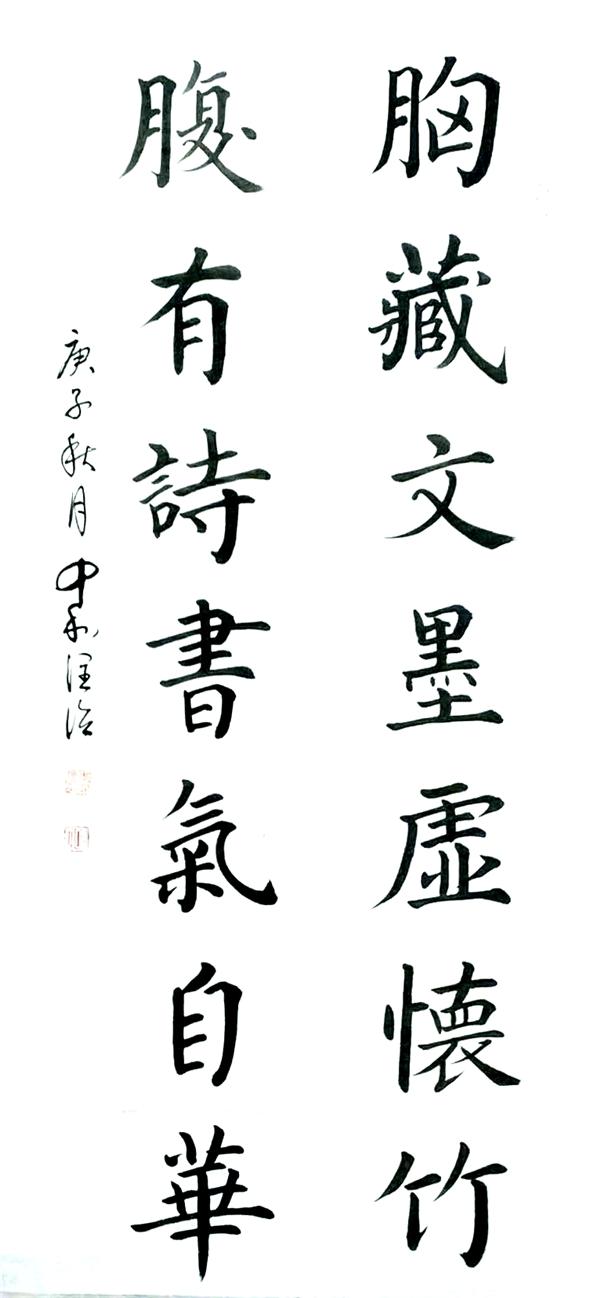 胸藏文墨虛懷竹
腹有詩書氣自華
庚子秋月